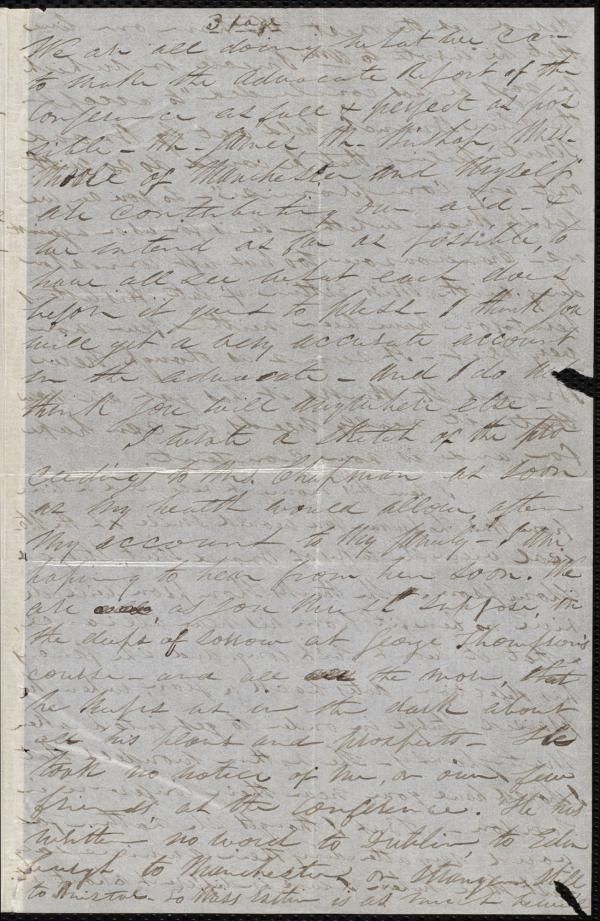 3 page
We are all doing what we can
to make the Advocate Report of the
Conference as full & perfect as pos
sible - Mr. James, Mr. Bishop, Miss
Moore of Manchester and Myself
are contributing our aid - &
we intend as far as possible, to
have all see what each does
before it goes to press - I think you
will get a very accurate account
in the Advocate - and I do not
think you will anywhere else -
I wrote a sketch of the pro
ceedings to Mrs. Chapman as soon
as my health would allow, after
my account to my family - I am
hoping to hear from her soon. We
are as you may suppose, in
the deeps of sorrow at George Thompson's
course - and all the more, that
he keeps us in the dark about
all his plans and prospects - He
took no notice of me, or our few
friends, at the Conference. He has
written no word to Dublin, to Edin
burgh to Manchester or
to Bristol - so Miss Estlin is as much